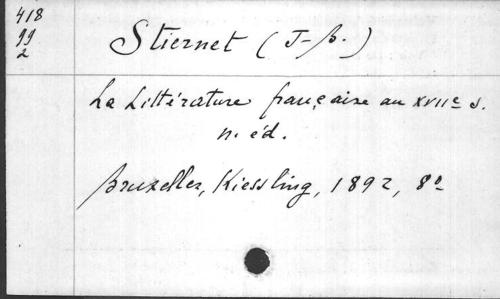 418
99
2
Stiernet (J-B.)
La Littérature française au XVIIe s.
n. éd.
Bruxelles, Kiessling, 1892, 8º